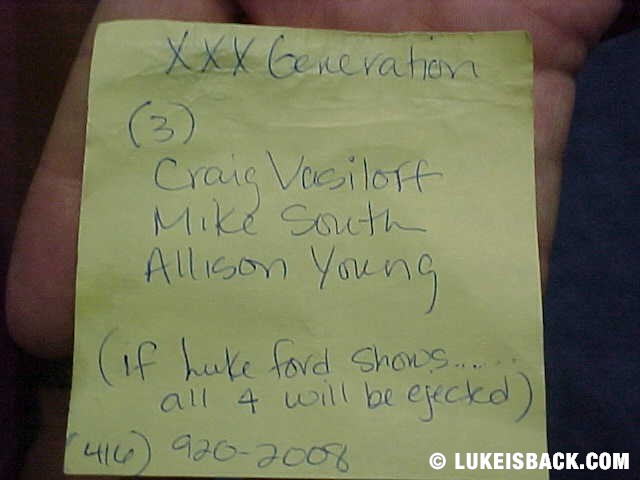 XXX Generation
(3)
Craig Vasiloff
Mike South
Allison Young
(if Luke ford shows......
all 4 will be ejected)
(416) 920-2008
© LUKEISBACK.COM